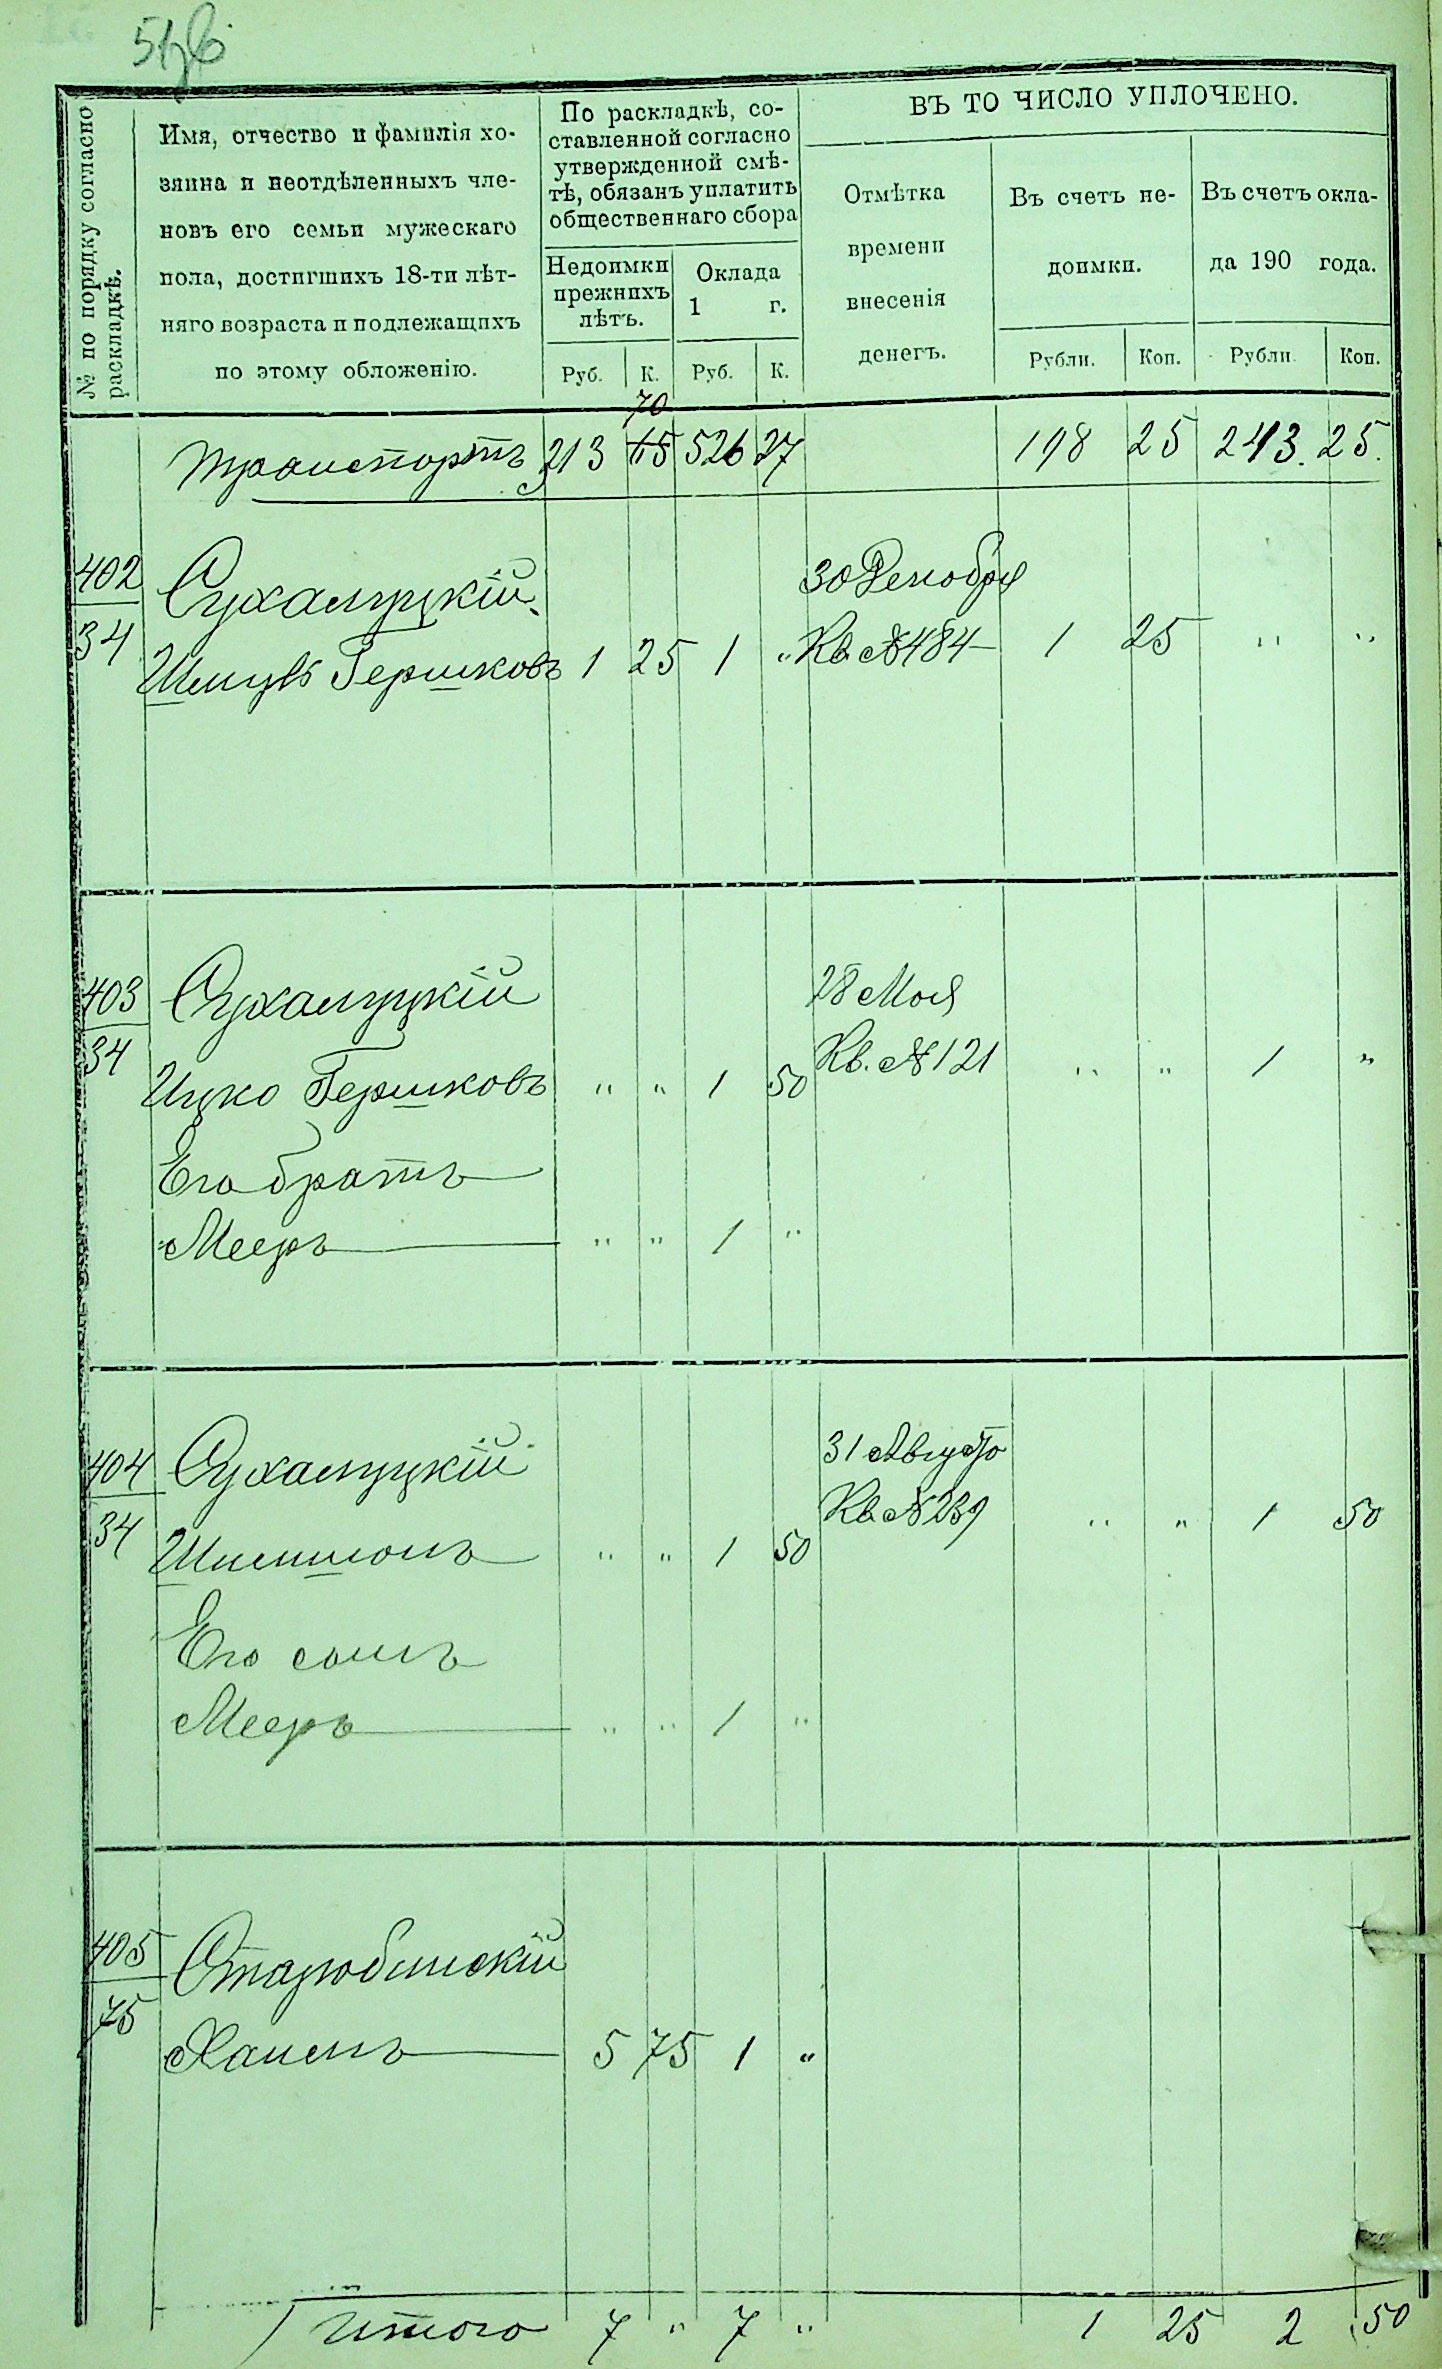 № по порядку согласно раскладкѣ.
Имя, отчество и фамилія хо-
зяина и неотдѣленныхъ чле-
новъ его семьи мужескаго
пола, достигшихъ 18-ти лѣт-
няго возраста и подлежащихъ
по этому обложенію.
По раскладкѣ, со-
ставленной согласно
утвержденной смѣ-
тѣ, обязанъ уплатить
общественнаго сбора
Недоимки
прежнихъ
лѣтъ.
Руб. К.
Оклада
1 г.
Руб. К.
ВЪ ТО ЧИСЛО УПЛОЧЕНО.
Отмѣтка
времени
внесенія
денегъ.
Въ счетъ не-
доимки.
Рубли. Коп.
Въ счетъ окла-
да 190 года.
Рубли. Коп.
70
Транспортъ 213 526 27 198 25 243. 25.
402 Сухалуцкій 30 Декабря
34 Шмуль Гершковъ 1 25 1 " Кв. № 484 1 25 " "
403 Сухалуцкій 28 Мая
34 Ицко Гершковъ " " 1 50 Кв. № 121 " " 1 "
Его братъ
Мееръ " " 1 "
404 Сухалуцкій 31 Августа
34 Шимшонъ " " 1 50 Кв. № 239 " " 1 50
Его сынъ
Мееръ " " 1 "
405 Старобинскій
75 Хаимъ 5 75 1 "
Итого 7 " 7 " 1 25 2 50